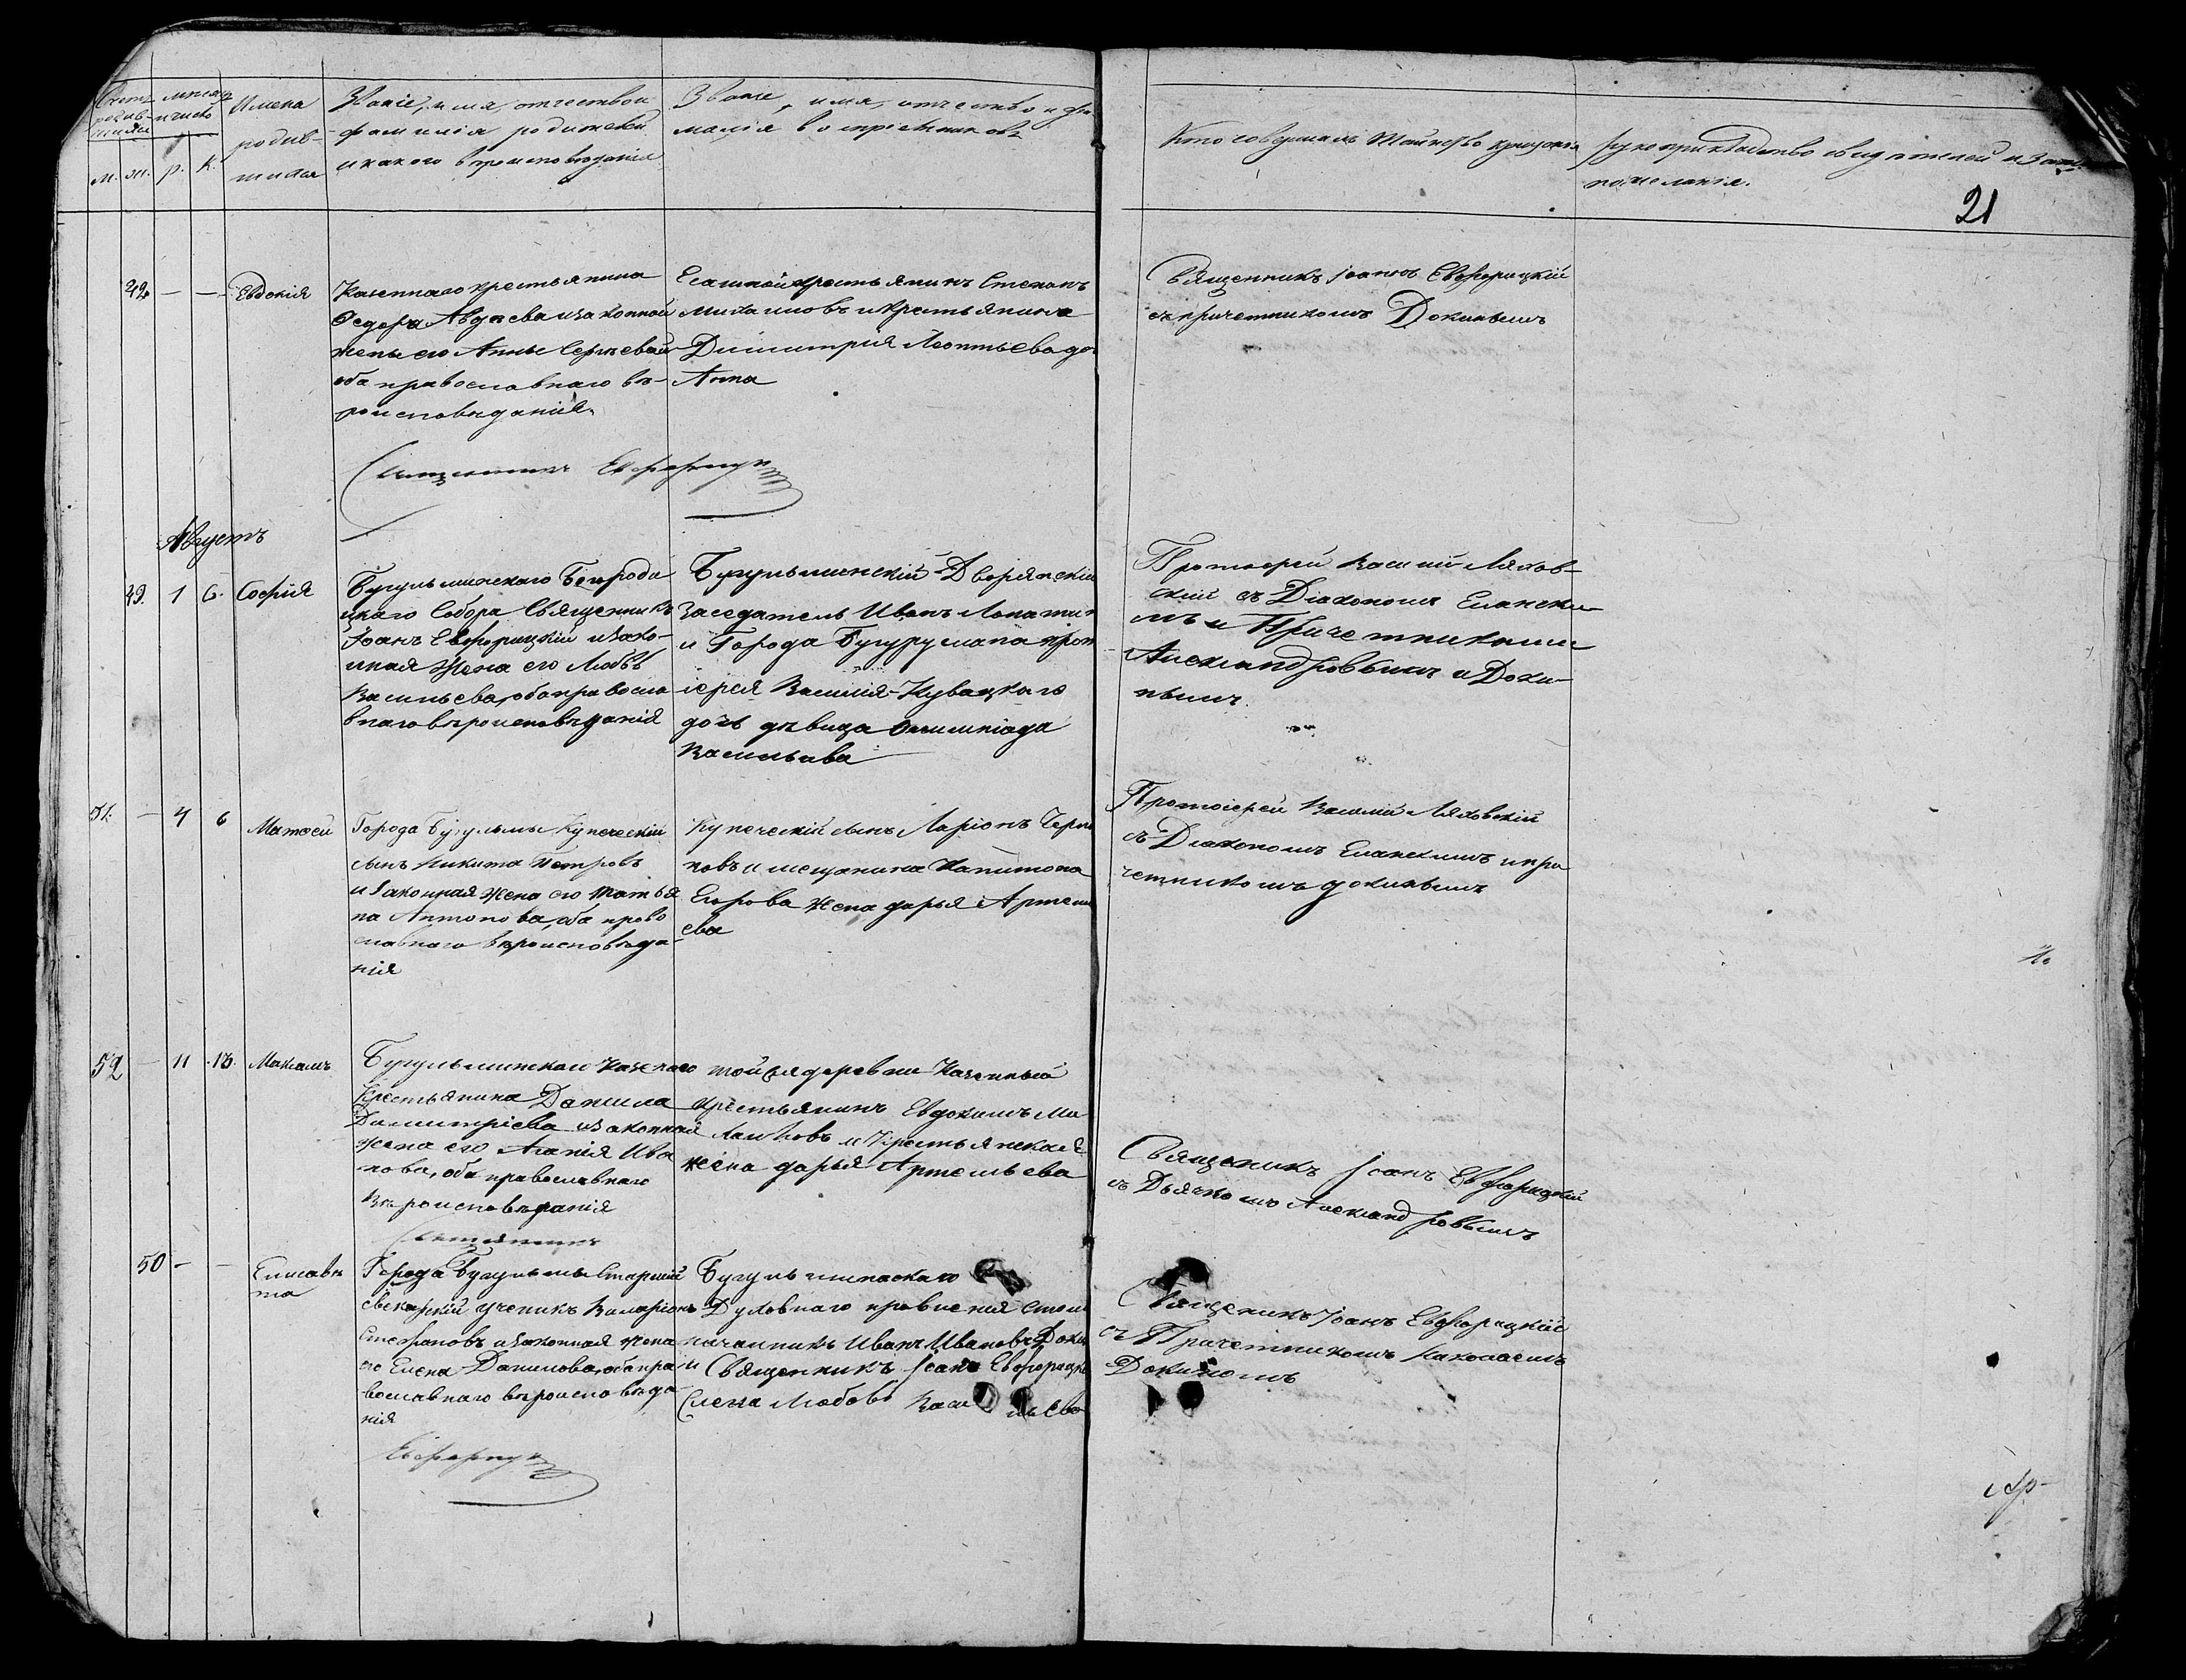 Имена
родив-
шихся
Званіе, имя, отчество и
фамилія родителей
и какого вѣроисповѣданія
Званіе, имя, отчество и фа
милія воспріемниковъ
Кто совершалъ таинство крещенія
Рукоприкладство свидѣтелей
по желанія.
м. ж. р. к.
21
Евдокія
Казеннаго крестьянина
Ѳедора Авдѣева и законной
жены его Анны Сергѣевой
оба православнаго вѣ-
роисповѣданія.
крестьянинъ Степанъ
Михаиловъ и крестьянина
Димитрія Леонтьева до
Анна
Священникъ Іоаннъ Евфорицкій
съ причетникомъ Докинымъ
Священникъ Евфорицк
Августъ
49. 1 6. Софія
Бугульминскаго Богороди
цкаго Собора Священникъ
Іоанъ Евфорицкій и зако-
нная жена его Любвѣ
Васильева, оба правосла
внаго вѣроисповѣданія
Бугульминскій Дворянскій
Заседатель Иванъ Лопатин
и Города Бугуруслана прот
іерея Василія Кувацкаго
дочь дѣвица Олимпіада
Васильева
Протоіерей Василій Ляхов-
скій съ Діакономъ Елански-
мъ и Причетниками
Александровымъ и Доки-
нымъ.
51. — 4 6 Матѳей
Города Бугульмы Купеческій
сынъ Никита Петровъ
и Законная жена его Татья
на Антонова, оба право
славнаго вѣроисповѣда-
нія
Купеческій сынъ Ларіонъ Черн
ковъ и мещанина Капитона
Егорова жена дарья Артем
ева
Протоіерей Василій Ляховскій
съ Діакономъ Еланскимъ и при
четникомъ докинымъ
52 — 11 13. Максимъ
Бугульминскаго Казенаго
Крестьянина Данила
Димитріева и законная
жена его Агапія Ива
нова, оба православнаго
вѣроисповѣданія
Священникъ
той же деревни Казенный
крестьянинъ Евдокимъ Ми
хаиловъ и Крестьянская
жена дарья Артемьева
Священикъ Іоанъ Евфорицкій
съ Дьячкомъ Александровымъ
50 — — Елисавѣ
та
Города Бугульмы Старшій
ученикъ Иларіонъ
Стефановъ и законная жена
его Елена Данилова, оба пра
вославнаго вѣроисповѣда-
нія
Бугульминскаго
Духовнаго правленія Стол
начальникъ Иванъ Ивановъ Доки
и Священникъ Іоанъ Евфорицк
Елена Любовь Васильева
Священикъ Іоанъ Евфорицкій
съ Причетникомъ Николаемъ
Докинымъ
Евфорицк